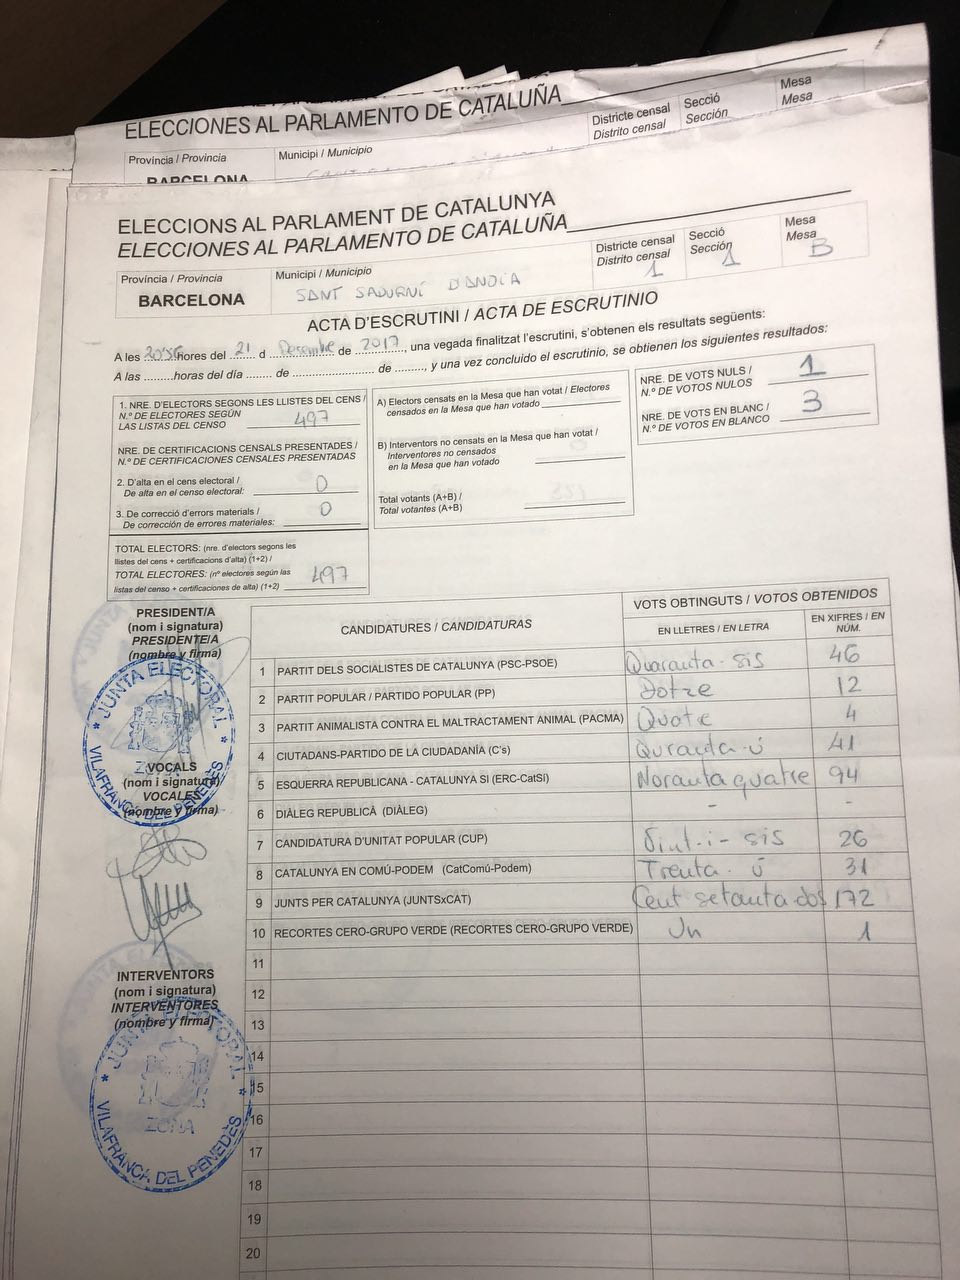 ELECCIONES AL PARLAMENTO DE CATALUÑA
Província / Provincia
BARCELONA
Municipi / Municipio
Districte censal
Distrito censal
Secció
Sección
Mesa
Mesa
ELECCIONS AL PARLAMENT DE CATALUNYA
ELECCIONES AL PARLAMENTO DE CATALUÑA
Província / Provincia
BARCELONA
Municipi / Municipio
SANT SADURNÍ D'ANOIA
Districte censal
Distrito censal
1
Secció
Sección
1
Mesa
Mesa
B
ACTA D'ESCRUTINI / ACTA DE ESCRUTINIO
A les hores del 21 d Desembre de 2017, una vegada finalitzat l'escrutini, s'obtenen els resultats següents:
A las .........horas del día ....... de ........................ de ........., y una vez concluido el escrutinio, se obtienen los siguientes resultados:
1. NRE. D'ELECTORS SEGONS LES LLISTES DEL CENS /
N.º DE ELECTORES SEGÚN
LAS LISTAS DEL CENSO 497
NRE. DE CERTIFICACIONS CENSALS PRESENTADES /
N.º DE CERTIFICACIONES CENSALES PRESENTADAS
2. D'alta en el cens electoral /
De alta en el censo electoral: 0
3. De correcció d'errors materials /
De corrección de errores materiales: 0
TOTAL ELECTORS: (nre. d'electors segons les
llistes del cens + certificacions d'alta) (1+2) /
TOTAL ELECTORES: (nº electores según las
listas del censo + certificaciones de alta) (1+2) 497
A) Electors censats en la Mesa que han votat / Electores
censados en la Mesa que han votado
B) Interventors no censats en la Mesa que han votat /
Interventores no censados
en la Mesa que han votado
Total votants (A+B) /
Total votantes (A+B)
NRE. DE VOTS NULS /
N.º DE VOTOS NULOS 1
NRE. DE VOTS EN BLANC /
N.º DE VOTOS EN BLANCO 3
PRESIDENT/A
(nom i signatura)
PRESIDENTE/A
(nombre y firma)
JUNTA ELECTORAL
ZONA
VILAFRANCA DEL PENEDÈS
VOCALS
(nom i signatura)
VOCALES
(nombre y firma)
INTERVENTORS
(nom i signatura)
INTERVENTORES
(nombre y firma)
JUNTA ELECTORAL
ZONA
VILAFRANCA DEL PENEDÈS
CANDIDATURES / CANDIDATURAS
VOTS OBTINGUTS / VOTOS OBTENIDOS
EN LLETRES / EN LETRA
EN XIFRES / EN
NÚM.
1 PARTIT DELS SOCIALISTES DE CATALUNYA (PSC-PSOE) Quaranta-sis 46
2 PARTIT POPULAR / PARTIDO POPULAR (PP) Dotze 12
3 PARTIT ANIMALISTA CONTRA EL MALTRACTAMENT ANIMAL (PACMA) Quatre 4
4 CIUTADANS-PARTIDO DE LA CIUDADANÍA (C's) Quranta-ú 41
5 ESQUERRA REPUBLICANA - CATALUNYA SI (ERC-CatSí) Noranta quatre 94
6 DIÀLEG REPUBLICÀ (DIÀLEG) - -
7 CANDIDATURA D'UNITAT POPULAR (CUP) Vint-i-sis 26
8 CATALUNYA EN COMÚ-PODEM (CatComú-Podem) Trenta-ú 31
9 JUNTS PER CATALUNYA (JUNTSxCAT) Cent setanta dos 172
10 RECORTES CERO-GRUPO VERDE (RECORTES CERO-GRUPO VERDE) Un 1
11
12
13
14
15
16
17
18
19
20